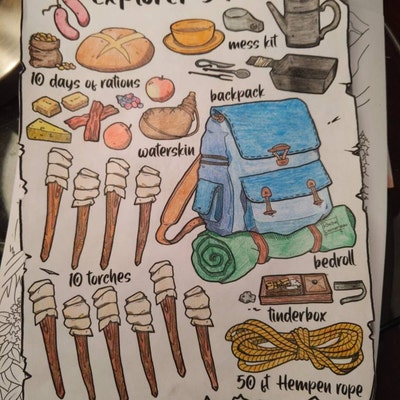 explorer's
mess kit
10 days of rations
backpack
waterskin
bedroll
10 torches
tinderbox
50 ft Hempen rope